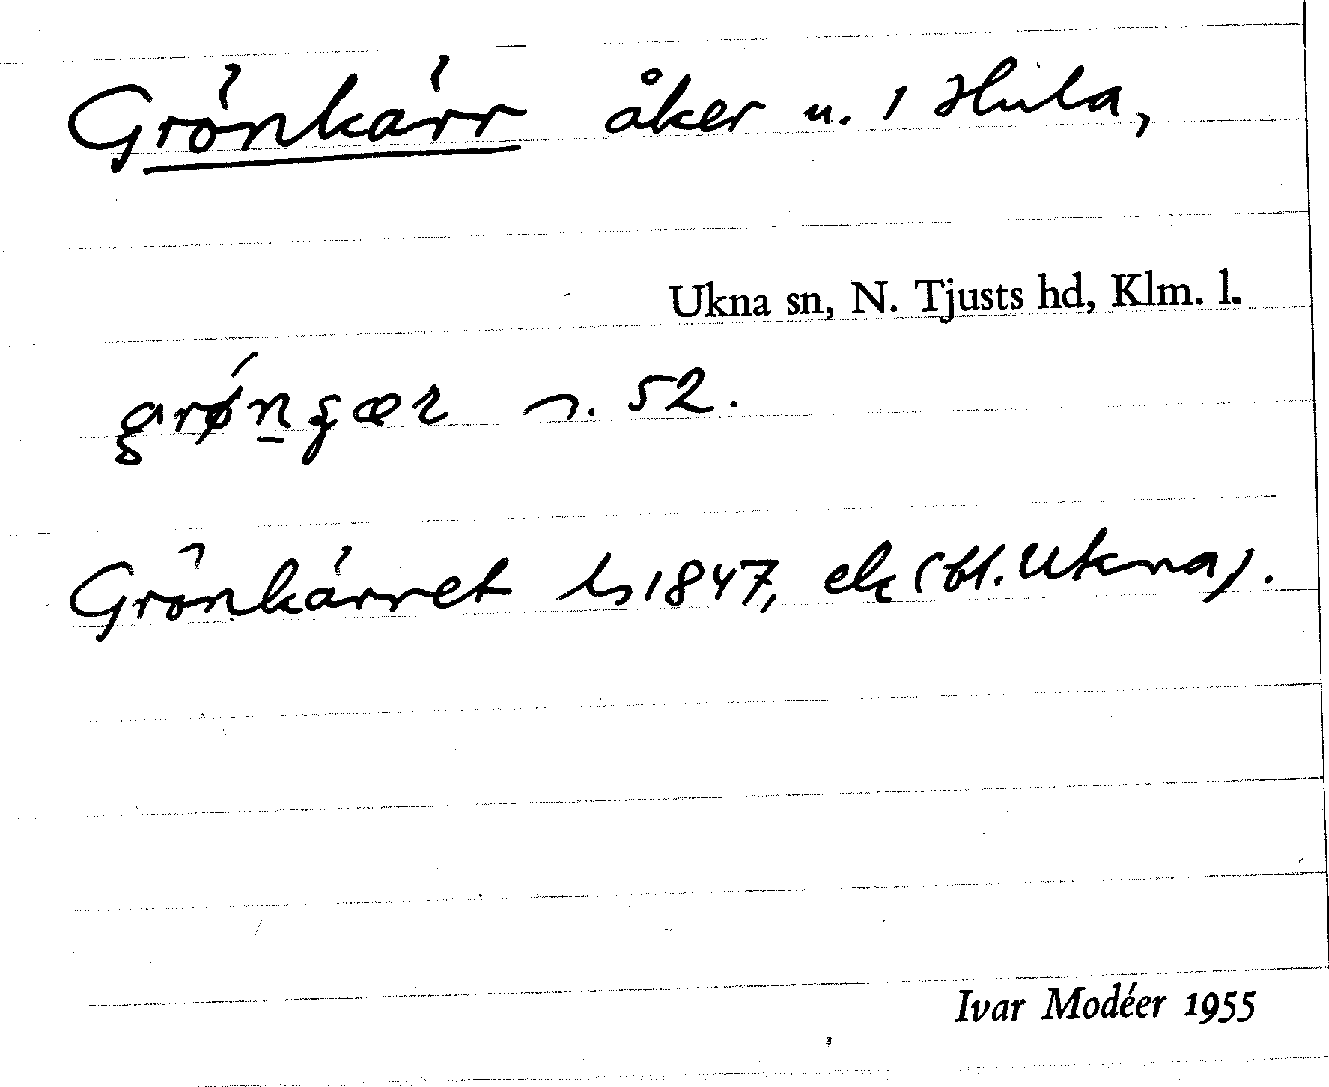 Grönkärr åker u. 1 Hula,
Ukna sn, N. Tjusts hd, Klm. l.
52.
Grönkärret ls 1847, ek (bl. Ukna).
Ivar Modéer 1955